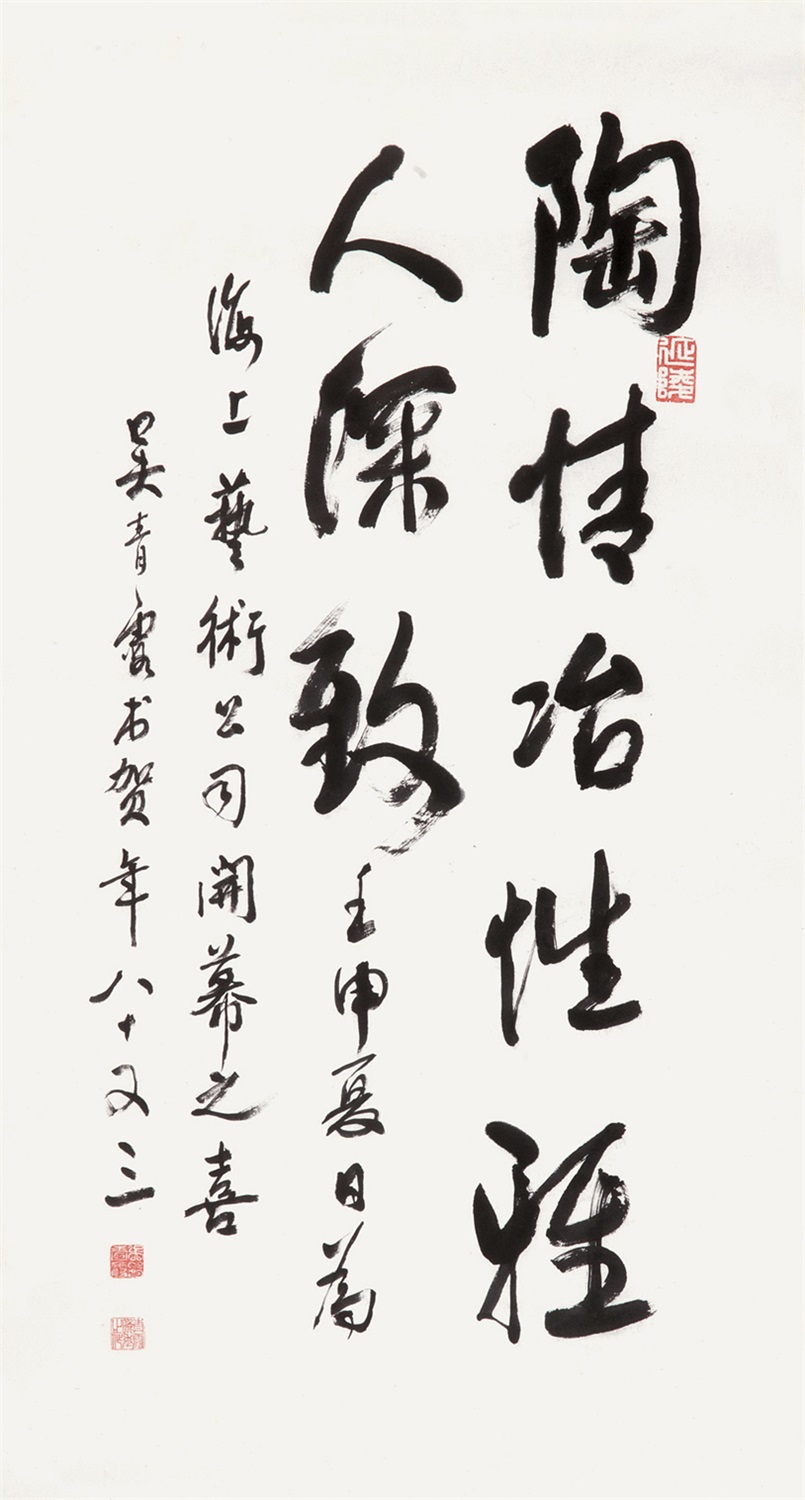 陶情冶性雅
人深致 壬申夏日為
海上藝術公司開幕之喜
吴青霞书贺年八十又三
延陵